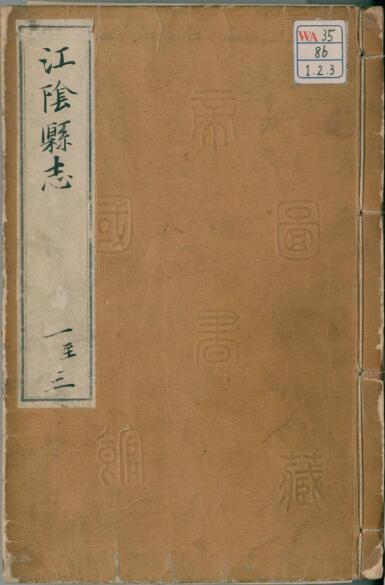 江陰縣志
一至三
WA 35
86
1.2.3
帝
國 圖
書
館 藏